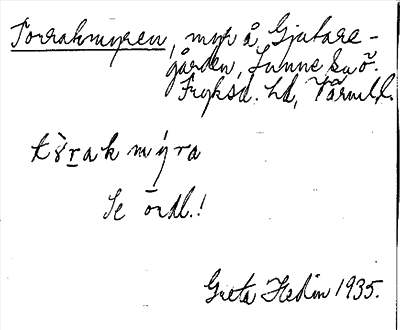 Torrakmyren, myr å Gjutare-
gården, Sunne sn ö.
Fryksd. hd, Värml.
t r a k m y r a
Se ordl.!
Greta Hedin 1935.